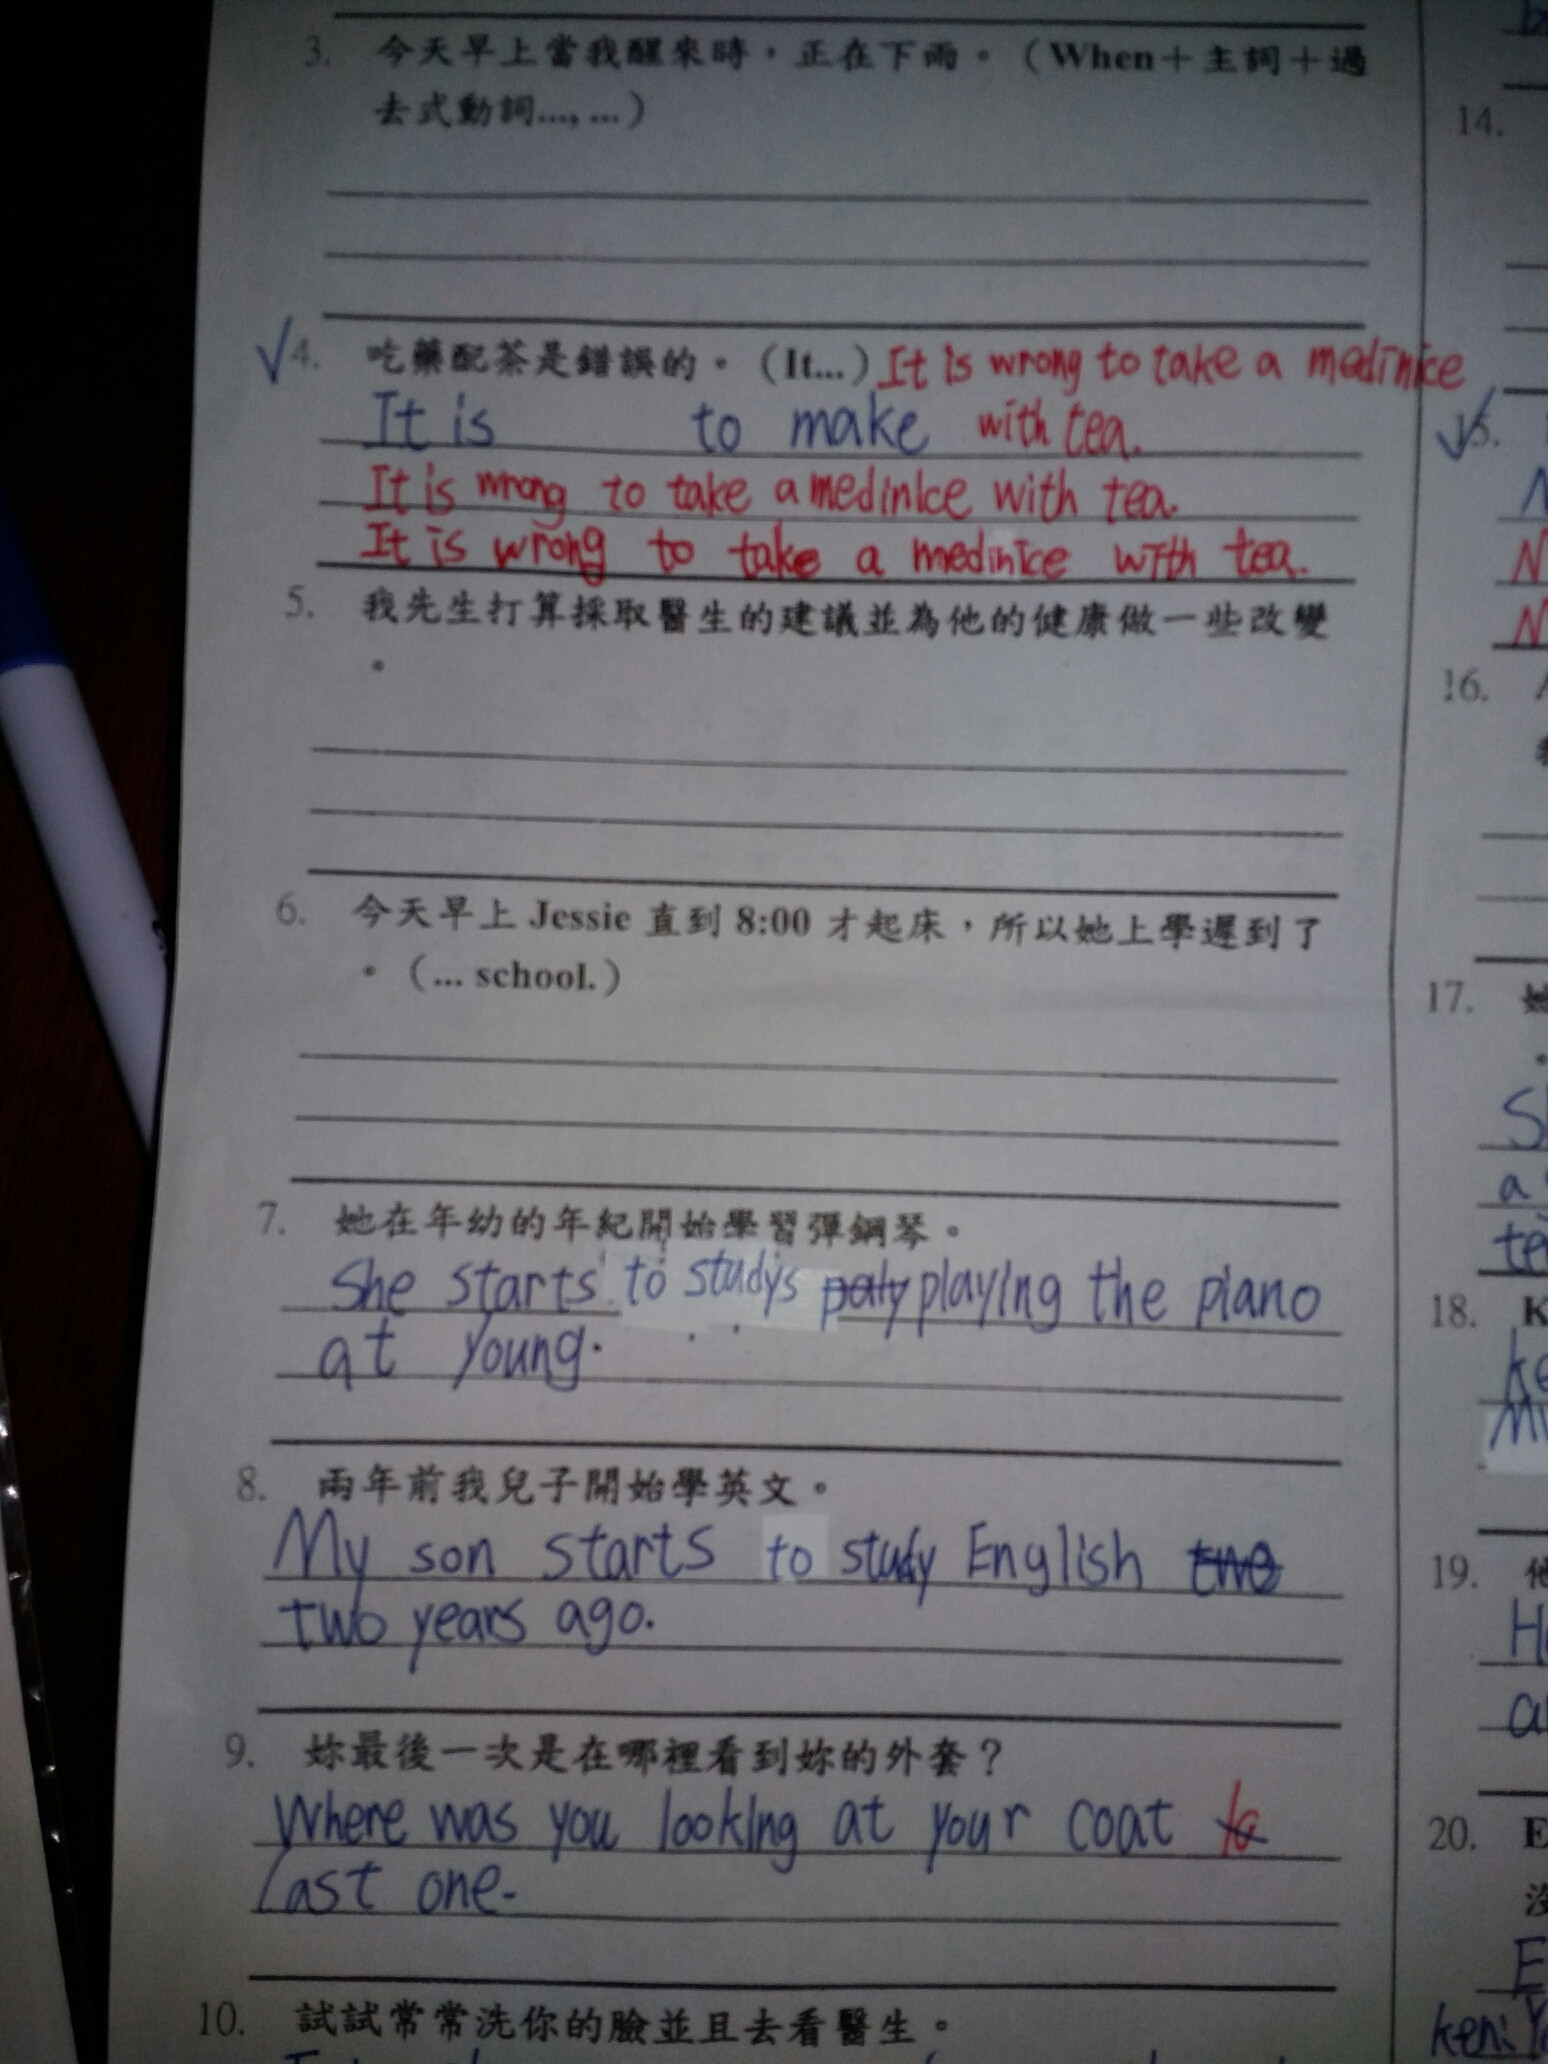 3. 今天早上當我醒來時，正在下雨。（When＋主詞＋過
去式動詞..., ...）
√4. 吃藥配茶是錯誤的。（It...）It is wrong to take a medinice
It is to make with tea.
It is wrong to take a medinice with tea.
It is wrong to take a medinice with tea.
5. 我先生打算採取醫生的建議並為他的健康做一些改變
。
6. 今天早上 Jessie 直到 8:00 才起床，所以她上學遲到了
。（... school.）
7. 她在年幼的年紀開始學習彈鋼琴。
She starts to studys paly playing the piano
at young.
8. 兩年前我兒子開始學英文。
My son starts to study English two
two years ago.
9. 妳最後一次是在哪裡看到妳的外套？
Where was you looking at your coat la
last one.
10. 試試常常洗你的臉並且去看醫生。
14.
√15.
N
N
N
16.
17. 她
。
S
a
te
18. K
ke
My
19. 他
H
a
20. E
沒
E
ken: Y